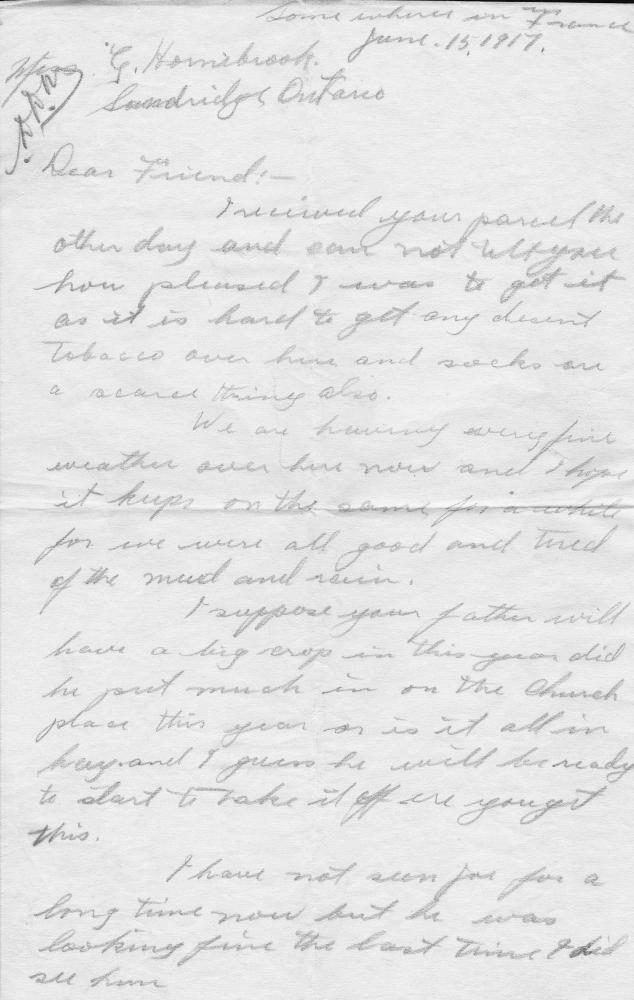 Some where in France
June. 15, 1917.
Miss G. Hornibrook.
Sundridge Ontario
Dear Friend:-
I recived your parcel the
other day and can not tell you
how pleased I was to get it
as it is hard to get any decent
Tobacco over here and socks are
a scarce thing also.
We are having very fine
weather over here now and I hope
it keeps on the same for a while
for we were all good and tired
of the mud and rain.
I suppose your father will
have a big crop in this year did
he put much in on the Church
place this year or is it all in
hay and I guess he will be ready
to start to take it off ere you get
this.
I have not seen Joe for a
long time now but he was
looking fine the last time I did
see him